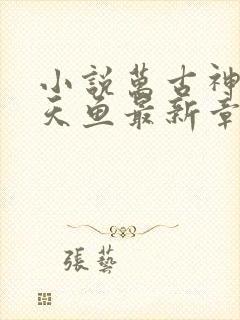 小説萬古神
天魚最新章
張藝